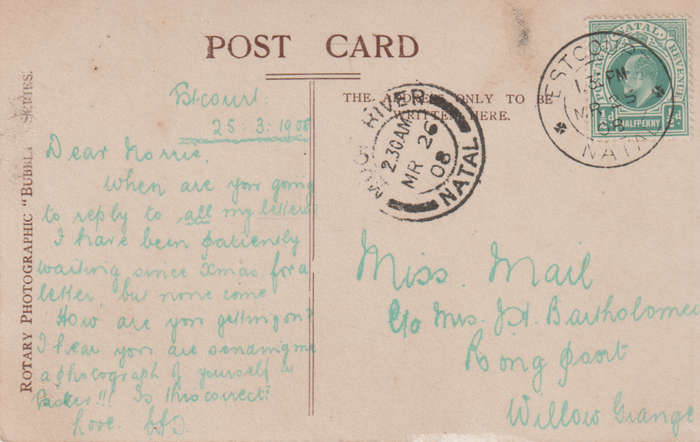 POST CARD
ROTARY PHOTOGRAPHIC "BUBBLE" SERIES.
Estcourt.
25.3.1908
Dear Morrie,
When are you going
to reply to all my letters
I have been patiently
waiting since Xmas for a
letter, but none come
How are you getting on?
I hear you are sending me
a photograph of yourself in
!!! Is this correct?
Love
THE ADDRESS ONLY TO BE
WRITTEN HERE.
MOOI RIVER
2.30 AM
MR 26
08
NATAL
ESTCOURT
MR 25
08
NATAL
NATAL
REVENUE
HALFPENNY
Miss. Mail
C/o Mrs. J. H. Bartholomew
Long
Willow Grange